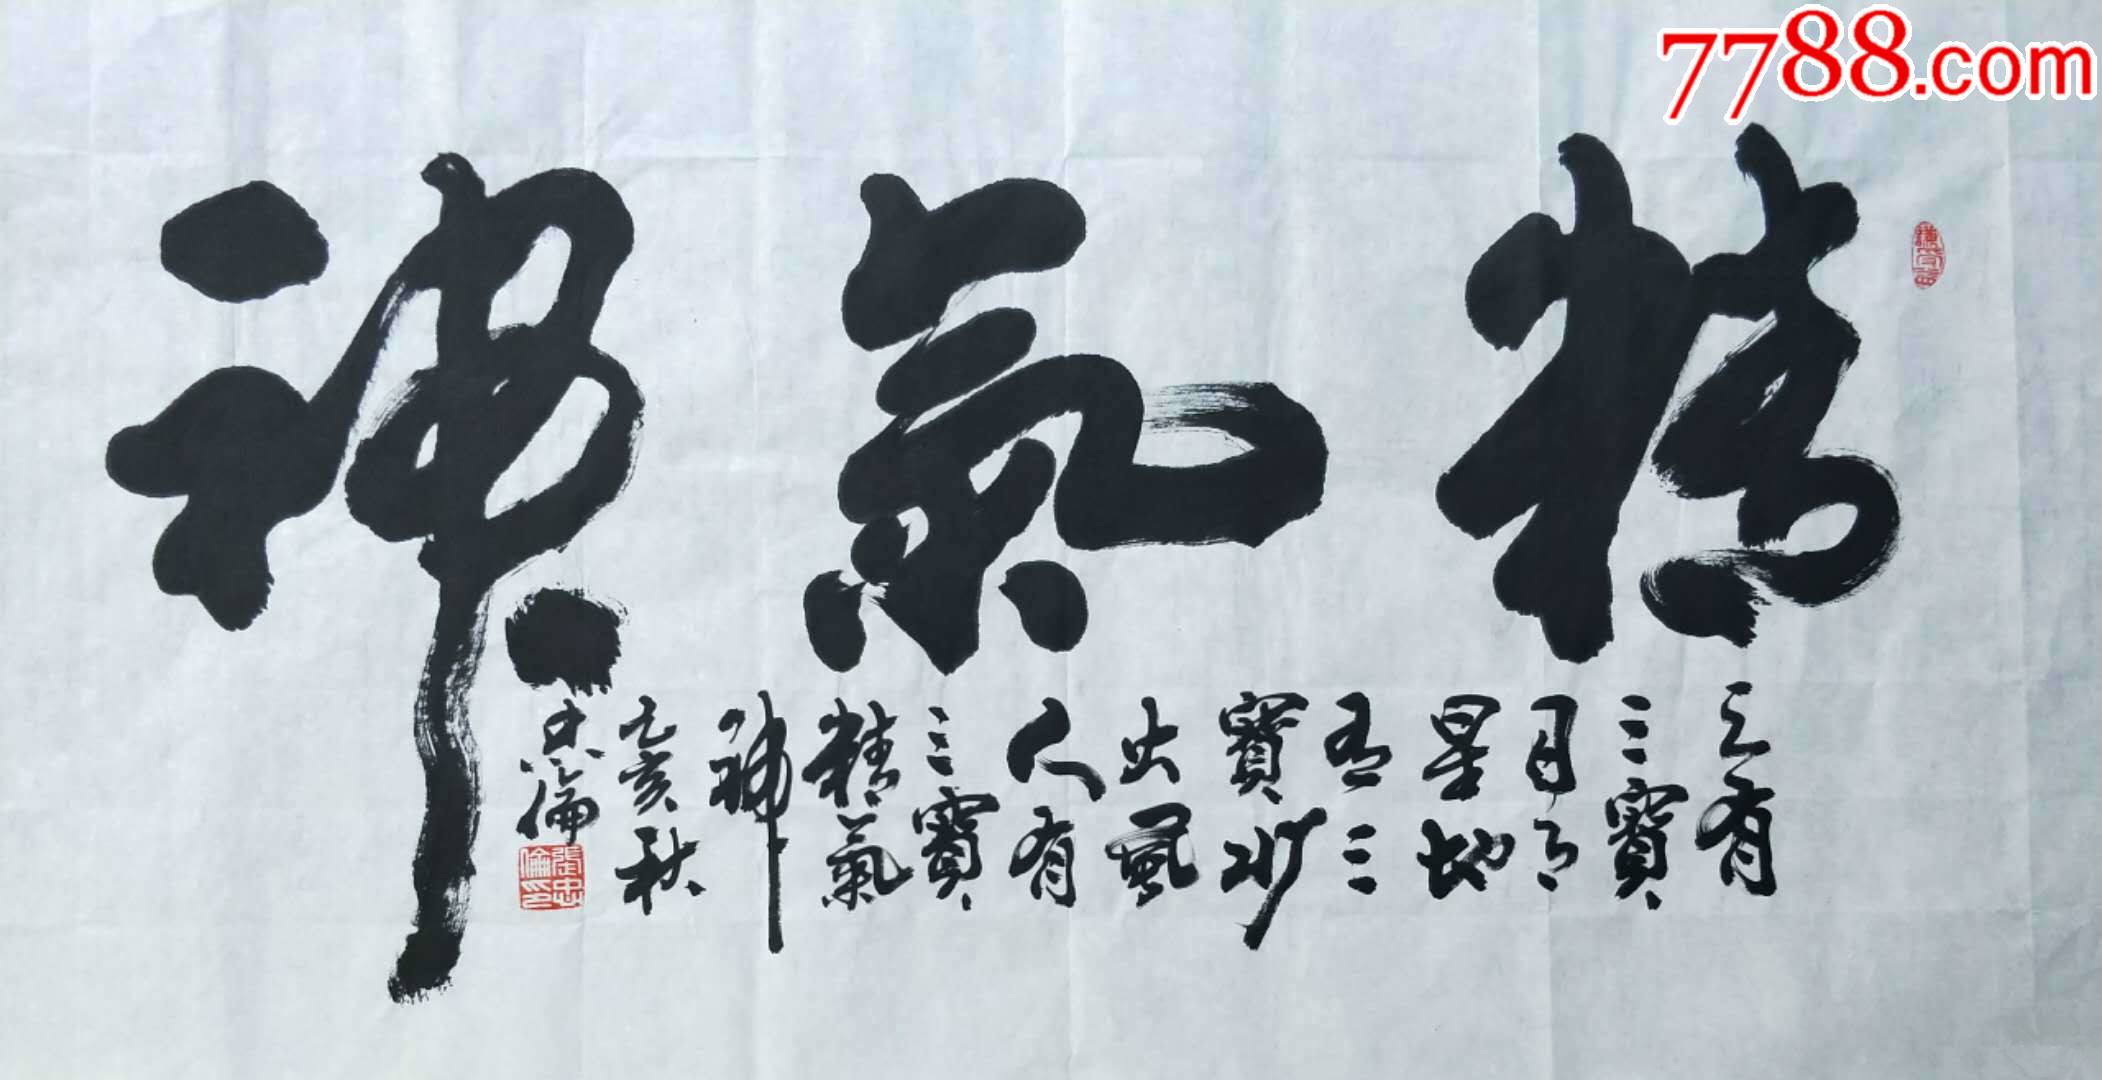 7788.com
精氣神
謙受益
天有
三寶
日月
星地
有三
寶水
火風
人有
三寶
精氣
神
己亥秋
忠倫
張忠倫印